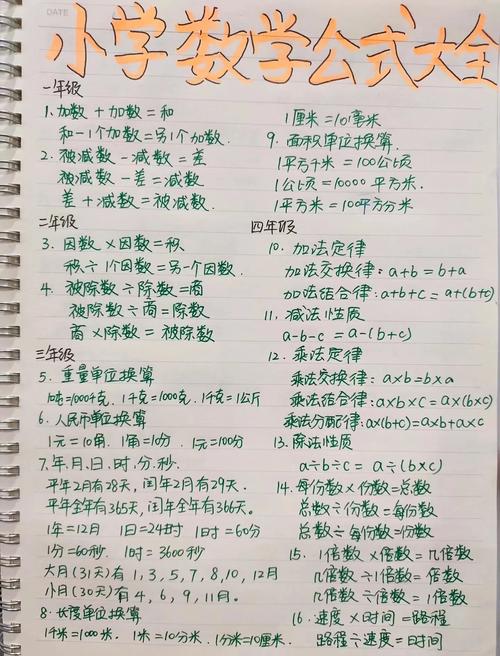 DATE
小学数学公式大全
一年级
1. 加数 + 加数 = 和
和 - 1个加数 = 另1个加数.
2. 被减数 - 减数 = 差
被减数 - 差 = 减数
差 + 减数 = 被减数.
二年级
3. 因数 × 因数 = 积
积 ÷ 1个因数 = 另一个因数.
4. 被除数 ÷ 除数 = 商
被除数 ÷ 商 = 除数
商 × 除数 = 被除数
三年级
5. 重量单位换算
1千克=1000克. 1千克=1公斤
6. 人民币单位换算
1元=10角. 1角=10分. 1元=100分
7. 年、月、日、时、分、秒.
平年2月有28天, 闰年2月有29天.
平年全年有365天, 闰年全年有366天.
1年=12月 1日=24时 1时=60分
1分=60秒. 1时=3600秒
大月(31天)有1,3,5,7,8,10,12月
小月(30天)有4,6,9,11月.
8. 长度单位换算
1千米=1000米. 1米=10分米. 1分米=10厘米.
1厘米=10毫米
9. 面积单位换算.
1平方千米=100公顷
1公顷=10000平方米.
1平方米=100平方分米
四年级
10. 加法定律
加法交换律: a+b=b+a
加法结合律: a+b+c=a+(b+c)
11. 减法性质
a-b-c=a-(b+c)
12. 乘法定律
乘法交换律: a×b=b×a
乘法结合律: a×b×c=a×(b×c)
乘法分配律: a×(b+c)=a×b+a×c
13. 除法性质
a÷b÷c=a÷(b×c)
14. 每份数×份数=总数
总数÷份数=每份数
总数÷每份数=份数
15. 1倍数×倍数=几倍数
几倍数÷1倍数=倍数
几倍数÷倍数=1倍数
16. 速度×时间=路程
路程÷速度=时间